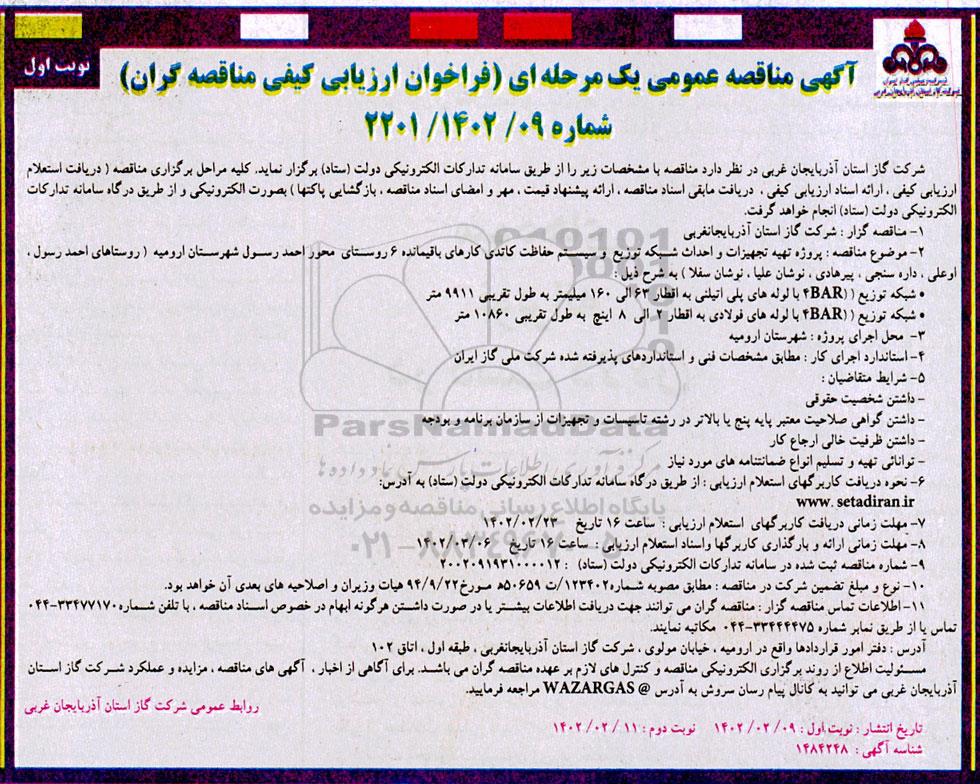 نوبت اول
آگهی مناقصه عمومی یک مرحله ای (فراخوان ارزیابی کیفی مناقصه گران)
شماره ۰۹/ ۱۴۰۲/ ۲۲۰۱
شرکت گاز استان آذربایجان غربی در نظر دارد مناقصه با مشخصات زیر را از طریق سامانه تدارکات الکترونیکی دولت (ستاد) برگزار نماید. کلیه مراحل برگزاری مناقصه ( دریافت استعلام
ارزیابی کیفی ، ارائه اسناد ارزیابی کیفی ، دریافت مابقی اسناد مناقصه ، ارائه پیشنهاد قیمت ، مهر و امضای اسناد مناقصه ، بازگشایی پاکتها ) بصورت الکترونیکی و از طریق درگاه سامانه تدارکات
الکترونیکی دولت (ستاد) انجام خواهد گرفت.
۱- مناقصه گزار : شرکت گاز استان آذربایجانغربی
۲- موضوع مناقصه : پروژه تهیه تجهیزات و احداث شبکه توزیع و سیستم حفاظت کاتدی کارهای باقیمانده ۶ روستای محور احمد رسول شهرستان ارومیه ( روستاهای احمد رسول ،
اوعلی ، داره سنجی ، پیرهادی ، نوشان علیا ، نوشان سفلا ) به شرح ذیل :
• شبکه توزیع ( (۴BAR با لوله های پلی اتیلنی به اقطار ۶۳ الی ۱۶۰ میلیمتر به طول تقریبی ۹۹۱۱ متر
• شبکه توزیع ( (۴BAR با لوله های فولادی به اقطار ۲ الی ۸ اینچ به طول تقریبی ۱۰۸۶۰ متر
۳- محل اجرای پروژه : شهرستان ارومیه
۴- استاندارد اجرای کار : مطابق مشخصات فنی و استانداردهای پذیرفته شده شرکت ملی گاز ایران
۵- شرایط متقاضیان :
- داشتن شخصیت حقوقی
- داشتن گواهی صلاحیت معتبر پایه پنج یا بالاتر در رشته تاسیسات و تجهیزات از سازمان برنامه و بودجه
- داشتن ظرفیت خالی ارجاع کار
- توانائی تهیه و تسلیم انواع ضمانتنامه های مورد نیاز
۶- نحوه دریافت کاربرگهای استعلام ارزیابی : از طریق درگاه سامانه تدارکات الکترونیکی دولت (ستاد) به آدرس:
www. setadiran.ir
۷- مهلت زمانی دریافت کاربرگهای استعلام ارزیابی : ساعت ۱۶ تاریخ ۱۴۰۲/۰۲/۲۳
۸- مهلت زمانی ارائه و بارگذاری کاربرگها واسناد استعلام ارزیابی : ساعت ۱۶ تاریخ ۱۴۰۲/۰۳/۰۶
۹- شماره مناقصه ثبت شده در سامانه تدارکات الکترونیکی دولت (ستاد) : ۲۰۰۲۰۹۱۹۳۱۰۰۰۰۱۲
۱۰- نوع و مبلغ تضمین شرکت در مناقصه : مطابق مصوبه شماره ۱۲۳۴۰۲/ت ۵۰۶۵۹ه مورخ ۹۴/۹/۲۲ هیات وزیران و اصلاحیه های بعدی آن خواهد بود.
۱۱- اطلاعات تماس مناقصه گزار : مناقصه گران می توانند جهت دریافت اطلاعات بیشتر یا در صورت داشتن هرگونه ابهام در خصوص اسناد مناقصه ، با تلفن شماره ۳۳۴۷۷۱۷۰-۰۴۴
تماس یا از طریق نمابر شماره ۳۳۴۴۴۴۷۵-۰۴۴ مکاتبه نمایند.
آدرس : دفتر امور قراردادها واقع در ارومیه ، خیابان مولوی ، شرکت گاز استان آذربایجانغربی ، طبقه اول ، اتاق ۱۰۲
مسئولیت اطلاع از روند برگزاری الکترونیکی مناقصه و کنترل های لازم بر عهده مناقصه گران می باشد. برای آگاهی از اخبار ، آگهی های مناقصه ، مزایده و عملکرد شرکت گاز استان
آذربایجان غربی می توانید به کانال پیام رسان سروش به آدرس @ WAZARGAS مراجعه فرمایید.
روابط عمومی شرکت گاز استان آذربایجان غربی
تاریخ انتشار : نوبت اول : ۰۹/ ۰۲/ ۱۴۰۲ نوبت دوم : ۱۱ /۰۲/ ۱۴۰۲
شناسه آگهی : ۱۴۸۴۲۴۸
ParsNamadData
مرکز فرآوری اطلاعات پارس نماد داده ها
پایگاه اطلاع رسانی مناقصه و مزایده